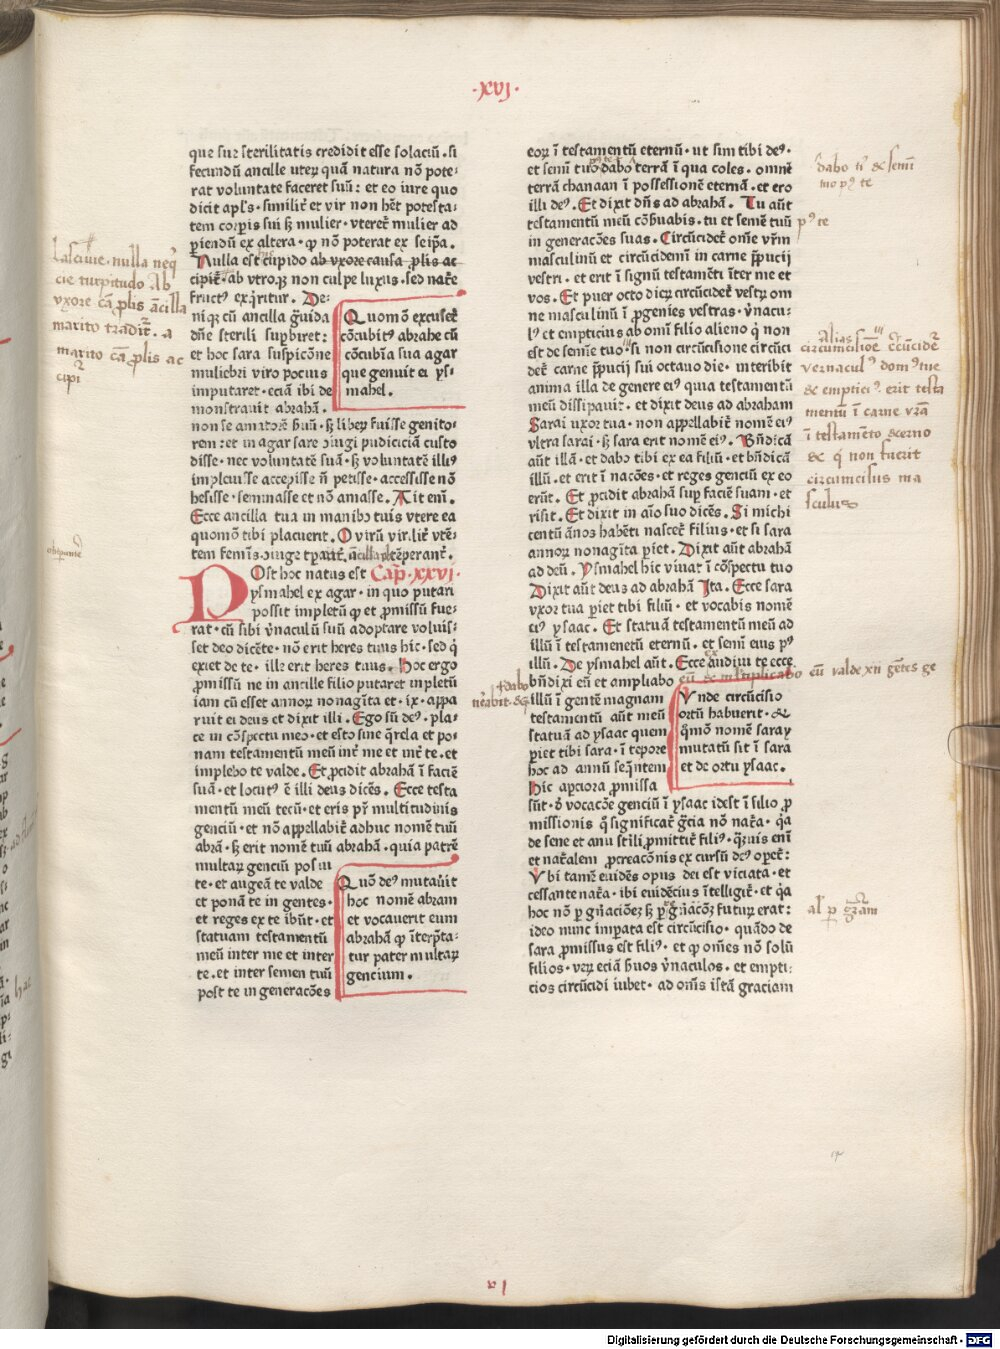 ·xvj·
que suę sterilitatis credidit esse solaciū. si
fecundū ancille uteꝝ quā natura nō pote-
rat voluntate faceret suū: et eo iure quo
dicit apl's. similit̄ et vir non hēt potesta-
tem corpis sui sꝫ mulier. vteret̄ mulier ad
ꝑiendū ex altera. ꝙ nō poterat ex seip̄a.
Nulla est cupido ab vxore causa ꝓlis ac
cipit̄. ab vtroqꝫ non culpe luxus. sed nat̄e
fructꝰ exq̄ritur. De-
niqꝫ cū ancilla g̃uida
dn̄e sterili supbiret:
et hoc sara suspicōne
muliebri viro pocius
imputaret. eciā ibi de
monstrauit abrahā.
Quomō excuset̄
cōcubitꝰ abrahe cū
cōcubīa sua agar
que genuit ei ys-
mahel.
non se amatorē
rem: et in agar sare ɔiugi pudiciciā custo
disse. nec voluntatē suā. sꝫ voluntatē illiꝰ
implevisse accepisse n̄ petisse. accessisse nō
hesisse. seminasse et nō amasse. Ait enī.
Ecce ancilla tua in manibꝰ tuis vtere ea
quomō tibi placuerit. O virū vir.lit̄ vtē-
tem femīs.
POst hoc natus est Cap̄.xxvj.
ysmahel ex agar. in quo putari
possit impletū ꝙ et ꝓmissū fue-
rat. cū sibi v̄naculū suū adoptare voluis-
set deo dicēte. nō erit heres tuus hic. sed q̇
exiet de te. ille erit heres tuus. Hoc ergo
ꝓmissū ne in ancille filio putaret inpletū
iam cū esset annoꝝ nonagīta et.ix.appa
ruit ei deus et dixit illi. Ego sū deꝰ. pla-
ce in cōspectu meo. et esto sine q̄rela et po-
nam testamentū meū int̄ me et int̄ te. et
implebo te valde. Et ꝓcidit abrahā ī faciē
suā. et locutꝰ ē illi deus dicēs. Ecce testa
mentū meū tecū. et eris pr̄ multitudinis
genciū. et nō appellabit̄ adhuc nomē tuū
abrā. sꝫ erit nomē tuū abrahā. quia patrē
multaꝝ genciū posui
te. et augeā te valde
et ponā te in gentes.
et reges ex te ibūt. et
statuam testamentū
meū inter me et inter
te. et inter semen tuū
post te in generacōes
Quō deꝰ mutauit
hoc nomē abram
et vocauerit eum
abrahā ꝙ īterp̄ta-
tur pater multaꝝ
gencium.
eoꝝ ī testamentū eternū. ut sim tibi deꝰ.
et semī tuo dabo terrā ī qua coles. omnē
terrā chanaan ī possessionē eternā. et ero
illi deꝰ. Et dixit dn̄s ad abrahā. Tu aūt
testamentū meū cōẜuabis. tu et semē tuū
in generacōes suas. Circūcidet̄ om̄e vr̄m
masculinū et circūcidemī in carne p̄pucij
vestri. et erit ī signū testamēti īter me et
vos. Et puer octo dieꝝ circūcidet̄ vestꝝ om
ne masculinū ī ꝓgenies vestras. v̄nacu-
lꝰ et empticius ab omī filio alieno q̇ non
est de semīe tuo. si non circūcisione circūci
det̄ carnē p̄pucij sui octauo die. interibit
anima illa de genere eiꝰ quia testamentū
meū dissipauit. et dixit deus ad abraham
Sarai uxor tua. non appellabit̄ nomē eiꝰ
vltra sarai. sꝫ sara erit nomē eiꝰ. Bn̄dicā
aūt illā. et dabo tibi ex ea filiū. et bn̄dicā
illū. et erit ī nacōes. et reges genciū ex eo
erūt. Et ꝓcidit abrahā suꝑ faciē suam. et
risit. Et dixit in aīo suo dicēs. Si michi
centū ānos habēti nascet̄ filius. et si sara
annoꝝ nonagīta ꝑiet. Dixit aūt abrahā
ad deū. Ysmahel hic viuat ī cōspectu tuo
Dixit aūt deus ad abrahā Ita. Ecce sara
vxor tua ꝑiet tibi filiū. et vocabis nomē
eiꝰ ysaac. Et statuā testamentū meū ad
illū ī testamenetū eternū. et semī eius pꝰ
illū. De ysmahel aūt. Ecce audiui te ecce
bn̄dixi eū et ampliabo
illū ī gentē magnam
testamentū aūt meū
statuā ad ysaac quem
ꝑiet tibi sara. ī tēpore
hoc ad annū seq̄ntem
Hic apciora ꝓmissa
Vnde circūcisio
ortū habuerit. &
q̄mō nomē saray
mutatū sit ī sara
et de ortu ysaac.
sūt. ꝺ vocacōe genciū ī ysaac idest ī filio ꝓ
missionis q̇ significat̄ gr̄cia nō nat̄a. q̇a
de sene et anu stili ꝓmittit̄ filiꝰ. q̄uis enī
et nat̄alem ꝓcreacōnis ex cursū deꝰ opet̄:
Vbi tamē euidēs opus dei est viciata. et
cessante nat̄a. ibi euidēcius ītelligit̄. et q̇a
hoc nō ꝑ gn̄aciōeꝫ sꝫ ꝑ gn̄acōꝫ futuꝝ erat:
ideo nunc imꝑata est circūcisio. quādo de
sara ꝓmissus est filiꝰ. et ꝙ om̄es nō solū
filios. veꝝ eciā ẜuos v̄naculos. et empti-
cios circūcidi iubet. ad om̄s istā graciam
Lascivie. nulla neq̇
cie turpitudo Ab
vxore cā ꝓlis ācilla
marito tradit̄. a
marito cā ꝓlis ac
cipi
dabo ti & semī
tuo pꝰ te
pꝰ te
Alias
circumcisiōe
vernaculꝰ domꝰ tue
& empticiꝰ. erit testa
mentū ī carne vr̄a
ī testamēto eterno
& q̇ non fuerit
circumcisus ma
sculus
eū & multiplicabo eū valde xii gētes ge
nerabit &
al' ꝑ gr̄am
Digitalisierung gefördert durch die Deutsche Forschungsgemeinschaft - DFG